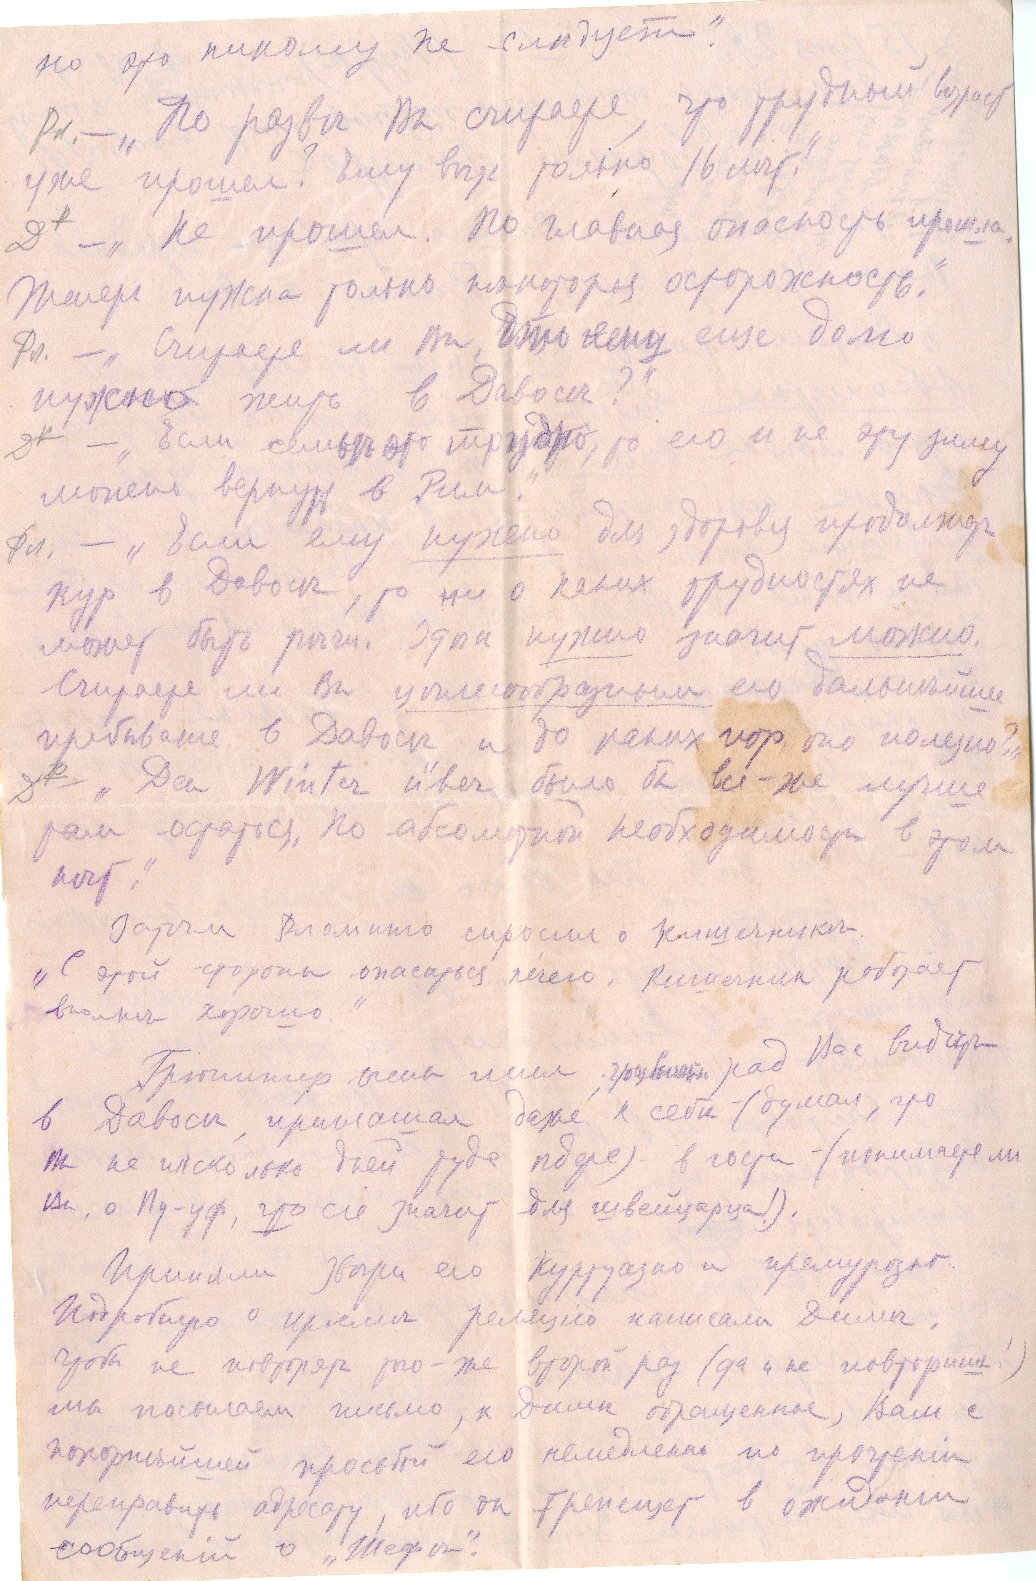 но это никому не следуетъ".
Фл. — „Но развѣ Вы считаете, что трудный возраст
уже прошел? Ему вѣдь только 16 лѣт."
Др — „Не прошел. Но главная опасность прошла.
Теперь нужна только нѣкоторая осторожность."
Фл. — „Считаете ли Вы, что ему еще долго
нужно жить в Давосѣ?"
Др — „Если семьѣ это трудно, то его и не эту зиму
можно вернуть в Рим."
Фл. — „Если ему нужно для здоровья продолжать
кур в Давосѣ, то ни о каких трудностях не
может быть рѣчи. Здѣсь нужно значит можно.
Считаете ли Вы цѣлесообразным его дальнѣйшее
пребыванie в Давосѣ и до каких пор оно полезно?"
Др — „Den Winter über было бы все-же лучше
там остаться, но абсолютной необходимости в этом
нѣт."
Затѣм Фламинго спросил о кишечникѣ.
„С этой стороны опасаться нечего. Кишечник работает
вполнѣ хорошо."
очень мил, рад Вас видѣть
в Давосѣ, приглашал даже к себѣ (думал, что
Вы не нѣсколько дней туда ѣдете) в гости (понимаете ли
Вы, о Пу-уф, что сie значит для швейцарца!).
Приняли Звѣри его куртуазно и премудро.
Подробную о прiемѣ реляцiю написали Димѣ.
Чтобы не повторять то-же второй раз (да и не повторишь!)
мы посылаем письмо, к Димѣ обращенное, Вам с
покорнѣйшей просьбой его немедленно по прочтенiи
переправить адресату, ибо он трепещет в ожиданiи
сообщенiй о „Шефѣ".